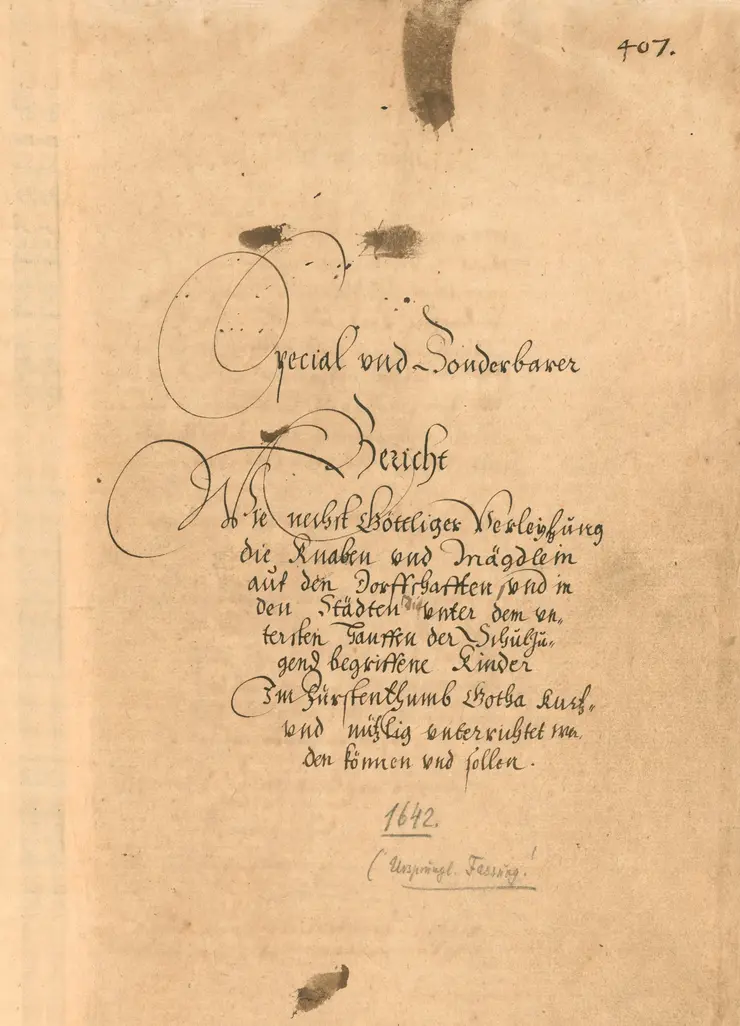 407.
Special vnd Sonderbarer
Bericht
Wie nechst Göttliger Verleyhung
die Knaben vnd Mägdlein
auf den Dorffschafften, vnd in
den Städten die vnter dem vn„
tersten Hauffen der Schulju„
gend begriffene Kinder
Im Fürstenthumb Gotha Kurtz„
vnd nützlig vnterrichtet wer
den können vnd sollen.
1642.
(Ursprüngl. Fassung!